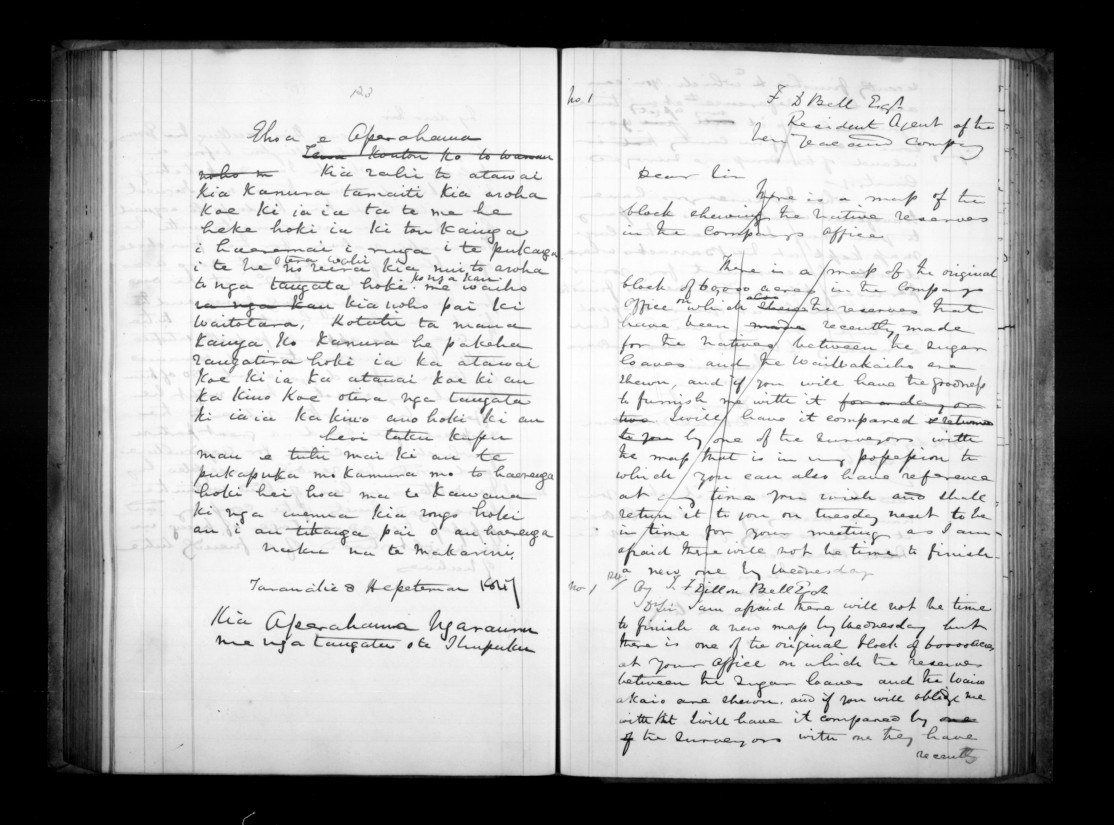 123
Ehoa e Aperahama
Tena koutou ko to
noho Kia rahi te atawai
kia Kamura tamaiti kia aroha
koe ki ia ia ta te me he
heke hoki ia ki tou kainga
i haeremai i runga i te pukapuka
i te he otira wahi
no reira kia nui to aroha
ko nga kau
to nga tangata hoki me waiho
ia nga kau kia noho pai ki
Waitotara, Kotahi ta mana
kainga ko Kamura he pakeha
rangatira hoki ia ka atawai
koe ki ia ka atawai koe ki au
ka kino koe otira nga tangata
ki ia ia ka kino ano hoki ki au
heri tatu kupu
mau e tuhi mai ki au te
pukapuka mo kamura mo to haerenga
hoki hei hoa ma te Kawana
ki nga wenua kia rongo hoki
au i au tikanga pai o au haerenga
naku na te Makarini
Taranaki Hepetema
Kia Aperahama Ngarauru
me nga tangata o te Ihupuku
No. 1
F D Bell Esqr
Resident Agent of the
New Zealand Company
Dear Sir
There is a map of the
block shewing the Native reserves
in the Companys Office
There is a map of the original
block of 60,000 acres in the Companys
Office on which also shewn the reserves that
have been made recently made
for the Natives between the Sugar
loaves and the Waiwakaiho are
shewn, and if you will have the goodness
to furnish me with it for a day or
two I will have it compared & returned
to you by one of the surveyors with
the map that is in my possession to
which you can also have reference
at any time you wish and shall
return it to you on tuesday next to be
in time for your meeting as I am
afraid there will not be time to finish
a new one by Wednesday
No. 1
F Dillon Bell Esq
Dr Sir I am afraid there will not be time
to finish a new map by Wednesday but
there is one of the original block of 60000 acres
at your office on which the reserves
between the Sugar loaves and the Waiw
akaio are shewn, and if you will oblige me
with that I will have it compared by one
of the surveyors with one they have
recently